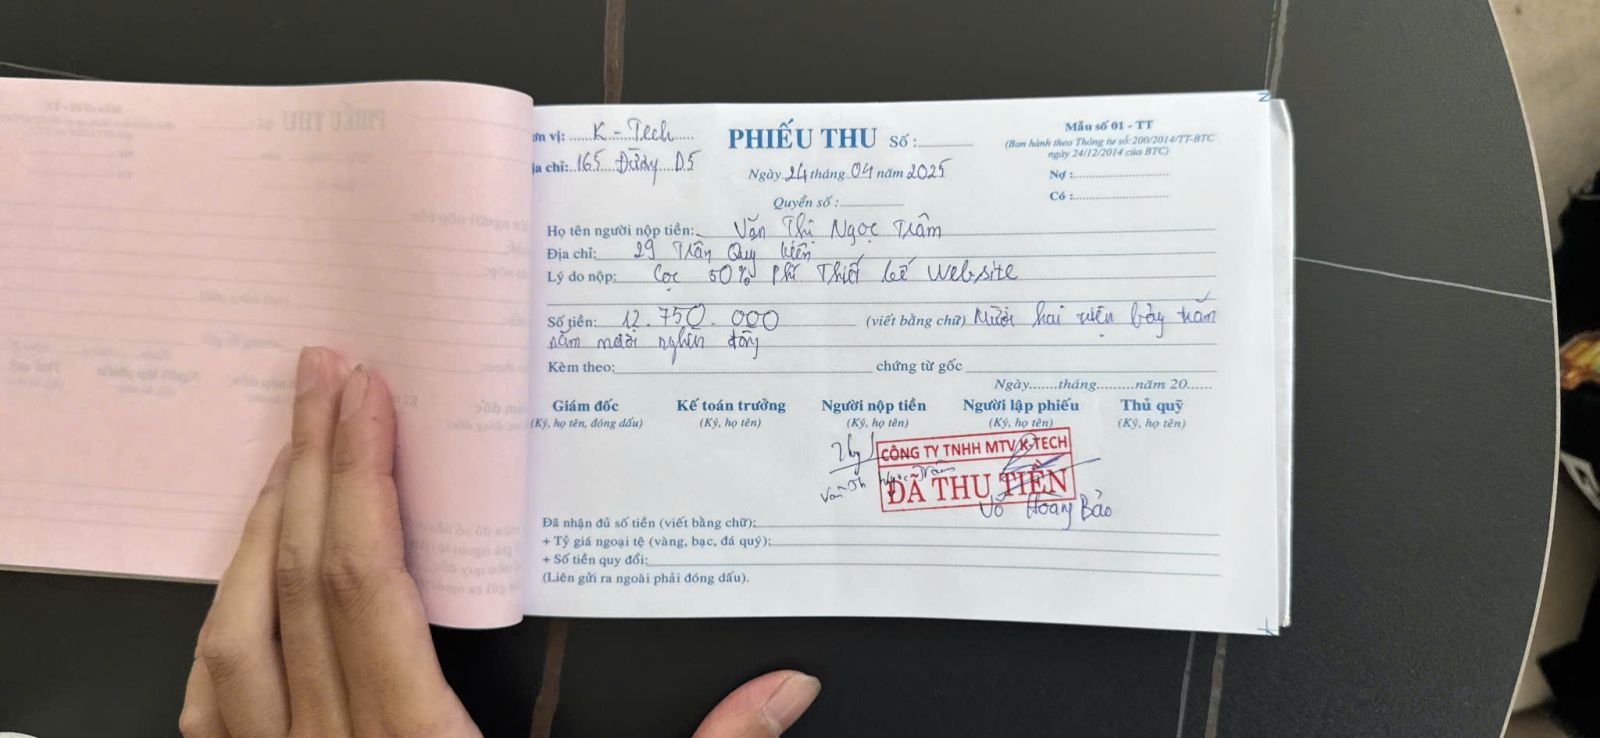 ơn vị: K - Tech
ịa chỉ: 165 Đường D5
PHIẾU THU Số:
Ngày 24 tháng 04 năm 2025
Quyển số:
Mẫu số 01 - TT
(Ban hành theo Thông tư số: 200/2014/TT-BTC
ngày 24/12/2014 của BTC)
Nợ:
Có:
Họ tên người nộp tiền: Văn Thị Ngọc Trâm
Địa chỉ: 29 Trần Quý Kiên
Lý do nộp: Cọc 50% Phí Thiết kế website
Số tiền: 12.750.000 (viết bằng chữ) Mười hai triệu bảy trăm
năm mươi nghìn đồng
Kèm theo: chứng từ gốc
Ngày tháng năm 20
Giám đốc Kế toán trưởng Người nộp tiền Người lập phiếu Thủ quỹ
(Ký, họ tên, đóng dấu) (Ký, họ tên) (Ký, họ tên) (Ký, họ tên) (Ký, họ tên)
CÔNG TY TNHH MTV K-TECH
ĐÃ THU TIỀN
Văn Th Ngọc Trâm
Võ Hoàng Bảo
Đã nhận đủ số tiền (viết bằng chữ):
+ Tỷ giá ngoại tệ (vàng, bạc, đá quý):
+ Số tiền quy đổi:
(Liên gửi ra ngoài phải đóng dấu).
PHIẾU THU